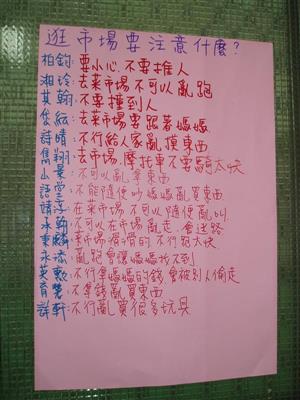 逛市場要注意什麼？
柏鈞：要小心，不要推人
湘玲：去菜市場不可以亂跑
其翰：不要撞到人
岱紜：去菜市場要跟著媽媽
詩晴：不行給人家亂摸東西
雋翔：去市場，摩托車不要騎太快
山葉：不可以亂拿東西
語萱：不能隨便吵媽媽亂買東西
靖淳：在菜市場不可以隨便亂叫
承翰：不可以在市場亂走，會迷路
秉麟：菜市場擠擠的不行跑太快
永流：亂跑會讓媽媽找不到
英數：不行拿媽媽的錢會被別人偷走
育慧：不拿錢亂買東西
詳軒：不行亂買很多玩具